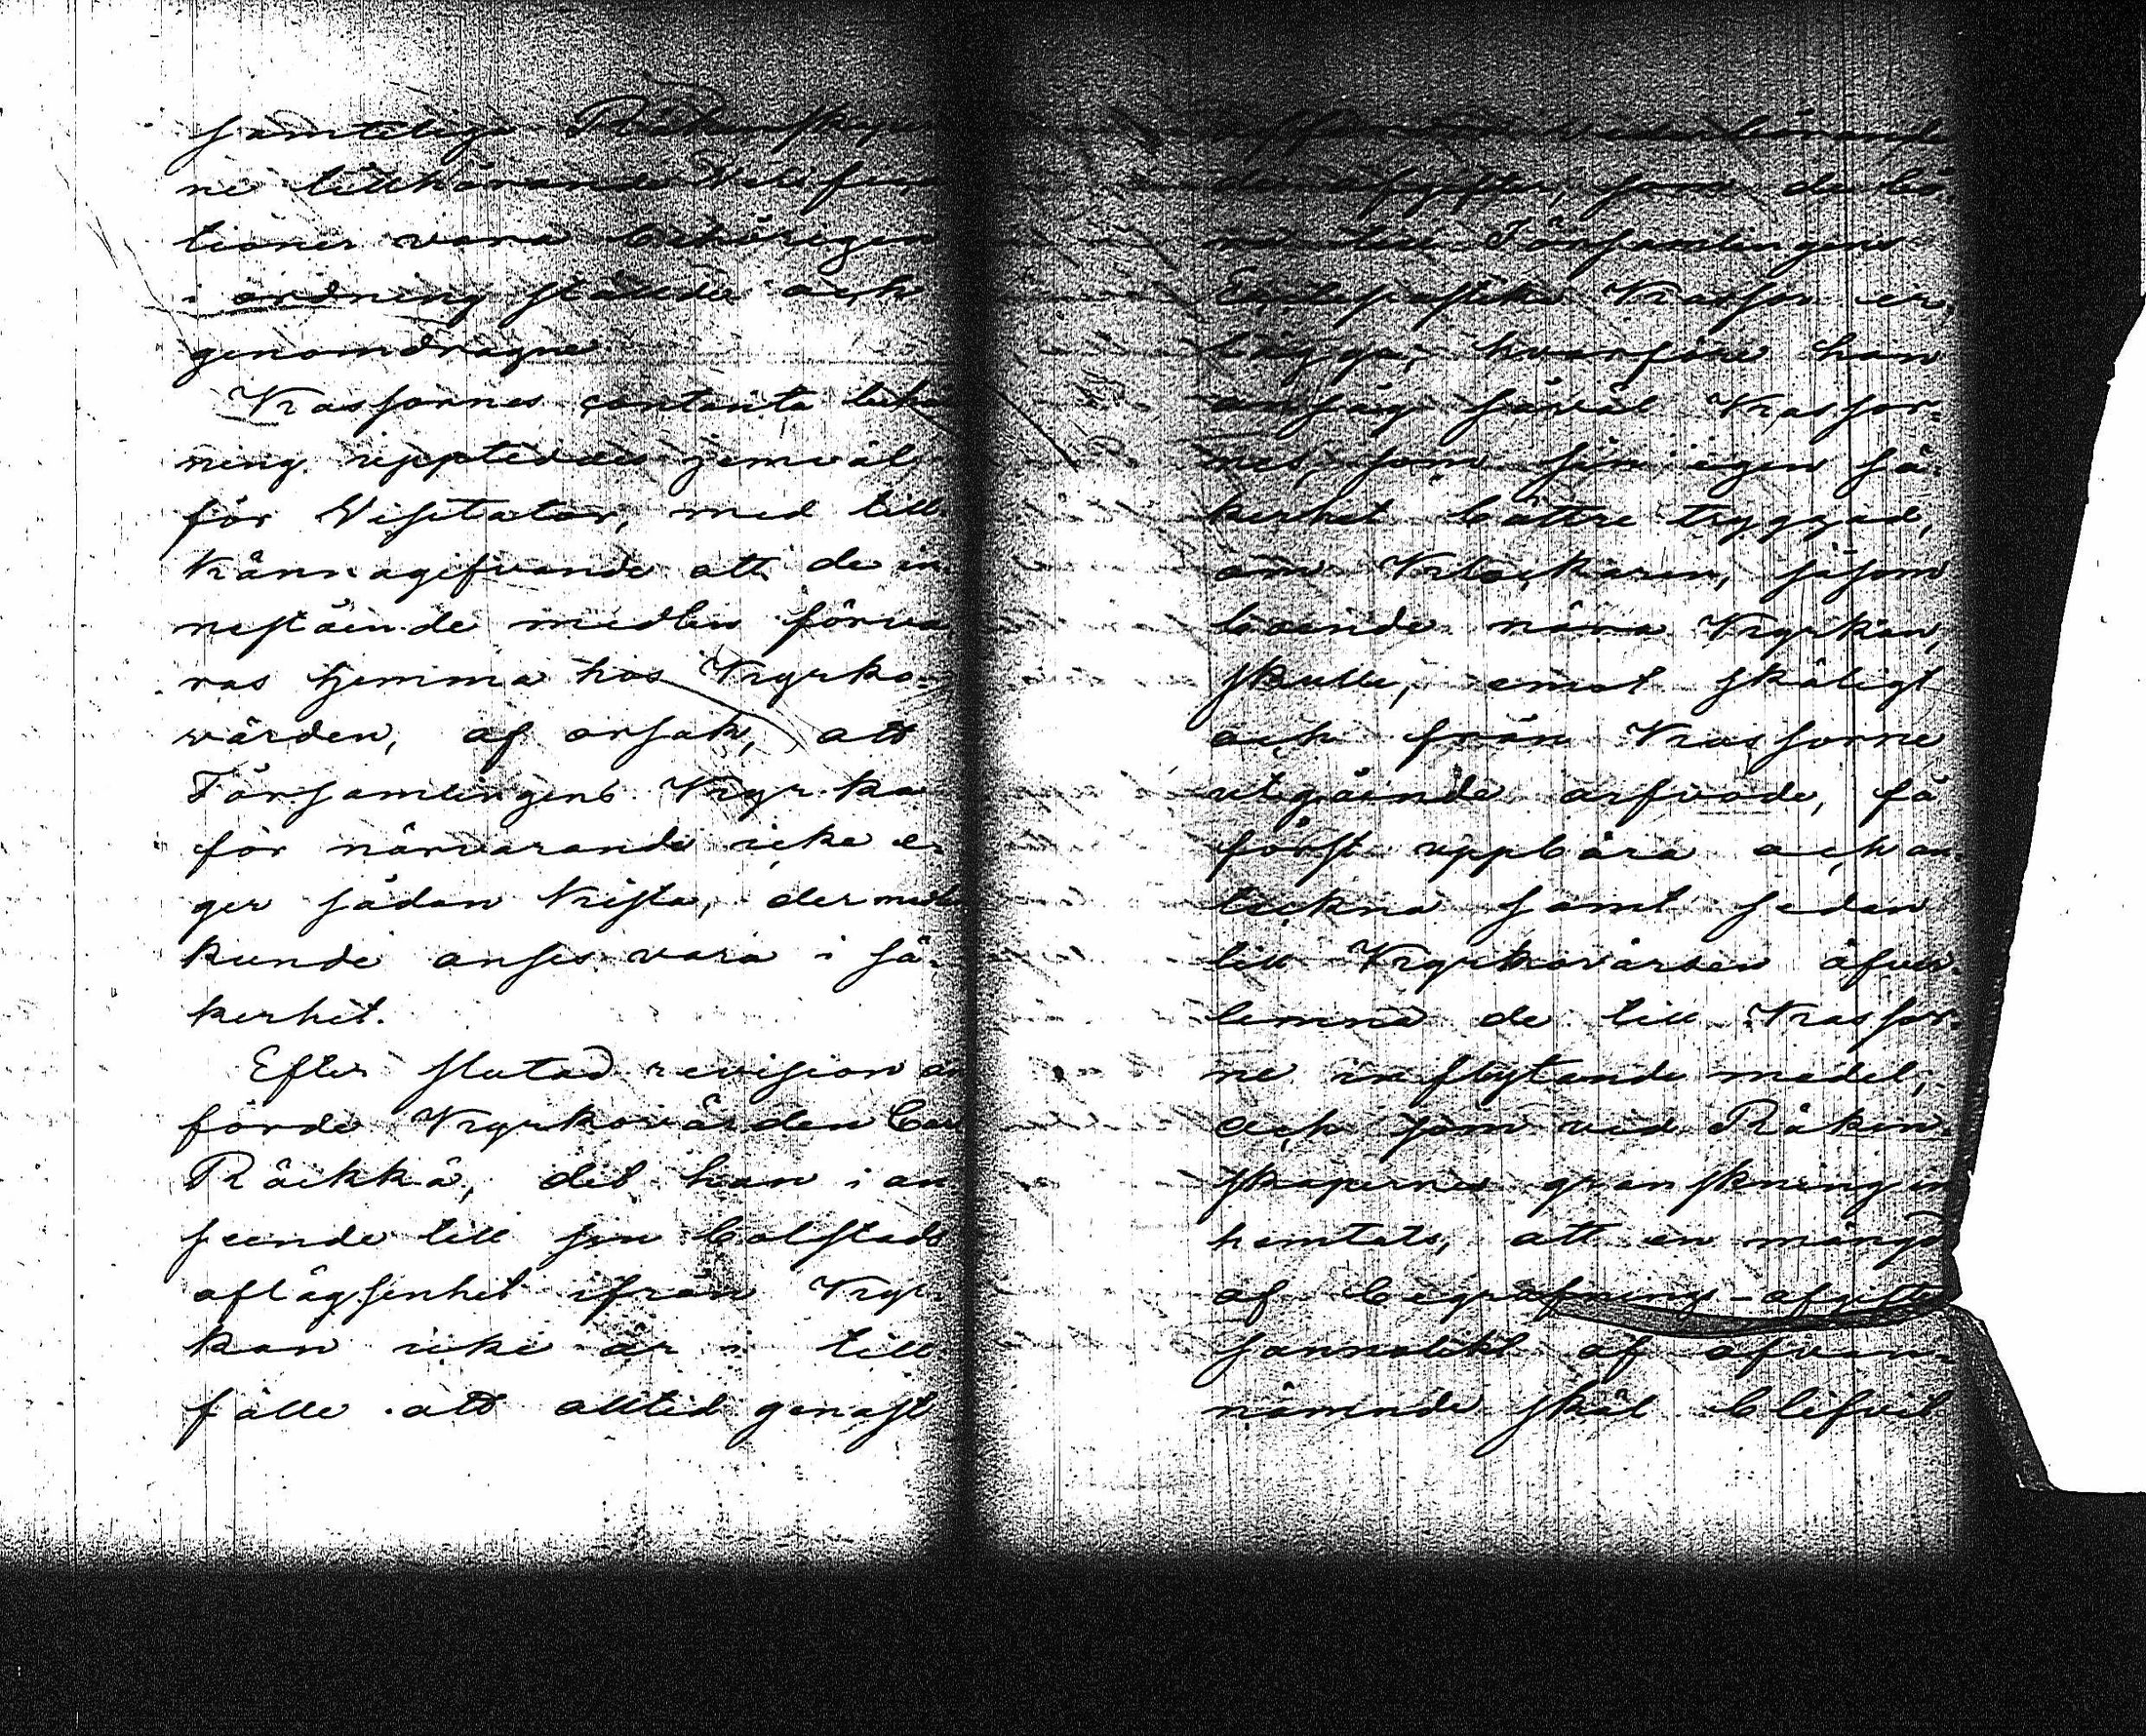 samtelige Räkenskaper
ne tillhörande Verifica
tioner vara behörigen
i ordning stälde och
genomdragne
Kassornes contanta beha
ning upptedes jemväl
för Visitator, med till
kännagifvande att de in
nestående medlen förva
ras hemma hos Kyrko-
värden, af orsak, att
Församlingens Kyrka
för närvarande icke e-
ger sådan Kista, der med
kunde anses vara i sä-
kerhet.
Efter slutad revision an
förde Kyrkovärden Car
Räikkä, det han i an
seende till sin bolstads
aflägsenhet ifrån Kyr-
kan icke är i till
fälle att alltid genast
vederbörande
de afgifter, som de bö-
ra till Församlingens
Ecclesiastike Kassor er-
lägga; hvarföre han
ansåg såväl Kassor-
nes, som sin egen sä-
kerhet bättre tryggad,
om Klockaren, såsom
boende nära Kyrkan,
skulle, emot skäligt
och från Kassorne
utgående arfvode, få
först uppbära och an-
teckna samt sedan
till Kyrkovärden öfver-
lemna de till Kassor-
ne inflytande medel;
Och som vid Räken-
skapernes granskning in
hemtats, att en mängd
af begrafnings-afgifter
sannolikt af ofvan-
nämnde skäl blifvit